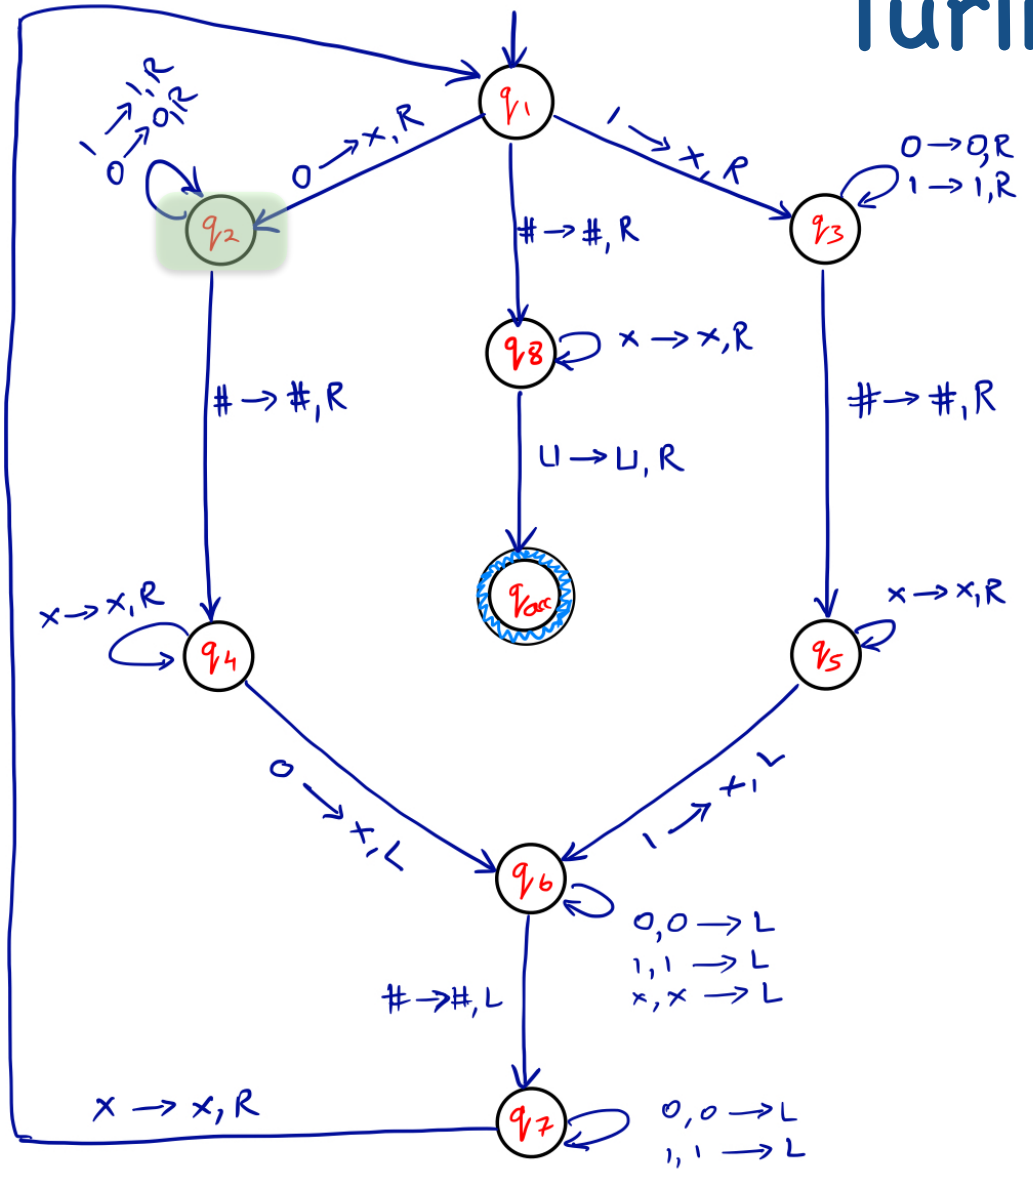 Turi
q1
1 → 1,R
0 → 0,R
0 → x,R
1 → x,R
0 → 0,R
1 → 1,R
q2
q3
# → #,R
q8
x → x,R
# → #,R
# → #,R
⊔ → ⊔,R
qacc
x → x,R
x → x,R
q4
q5
0 → x,L
1 → x,L
q6
0,0 → L
1,1 → L
x,x → L
# → #,L
x → x,R
q7
0,0 → L
1,1 → L